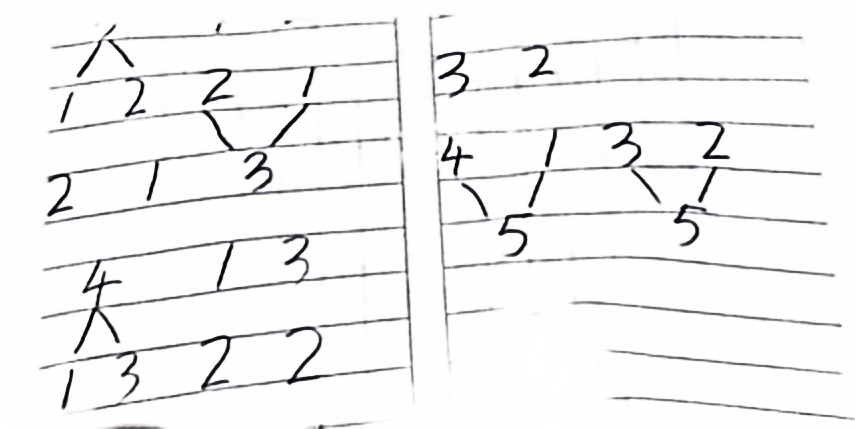 1 2 2 1
2 1 3
4 1 3
1 3 2 2
3 2
4 1 3 2
5 5